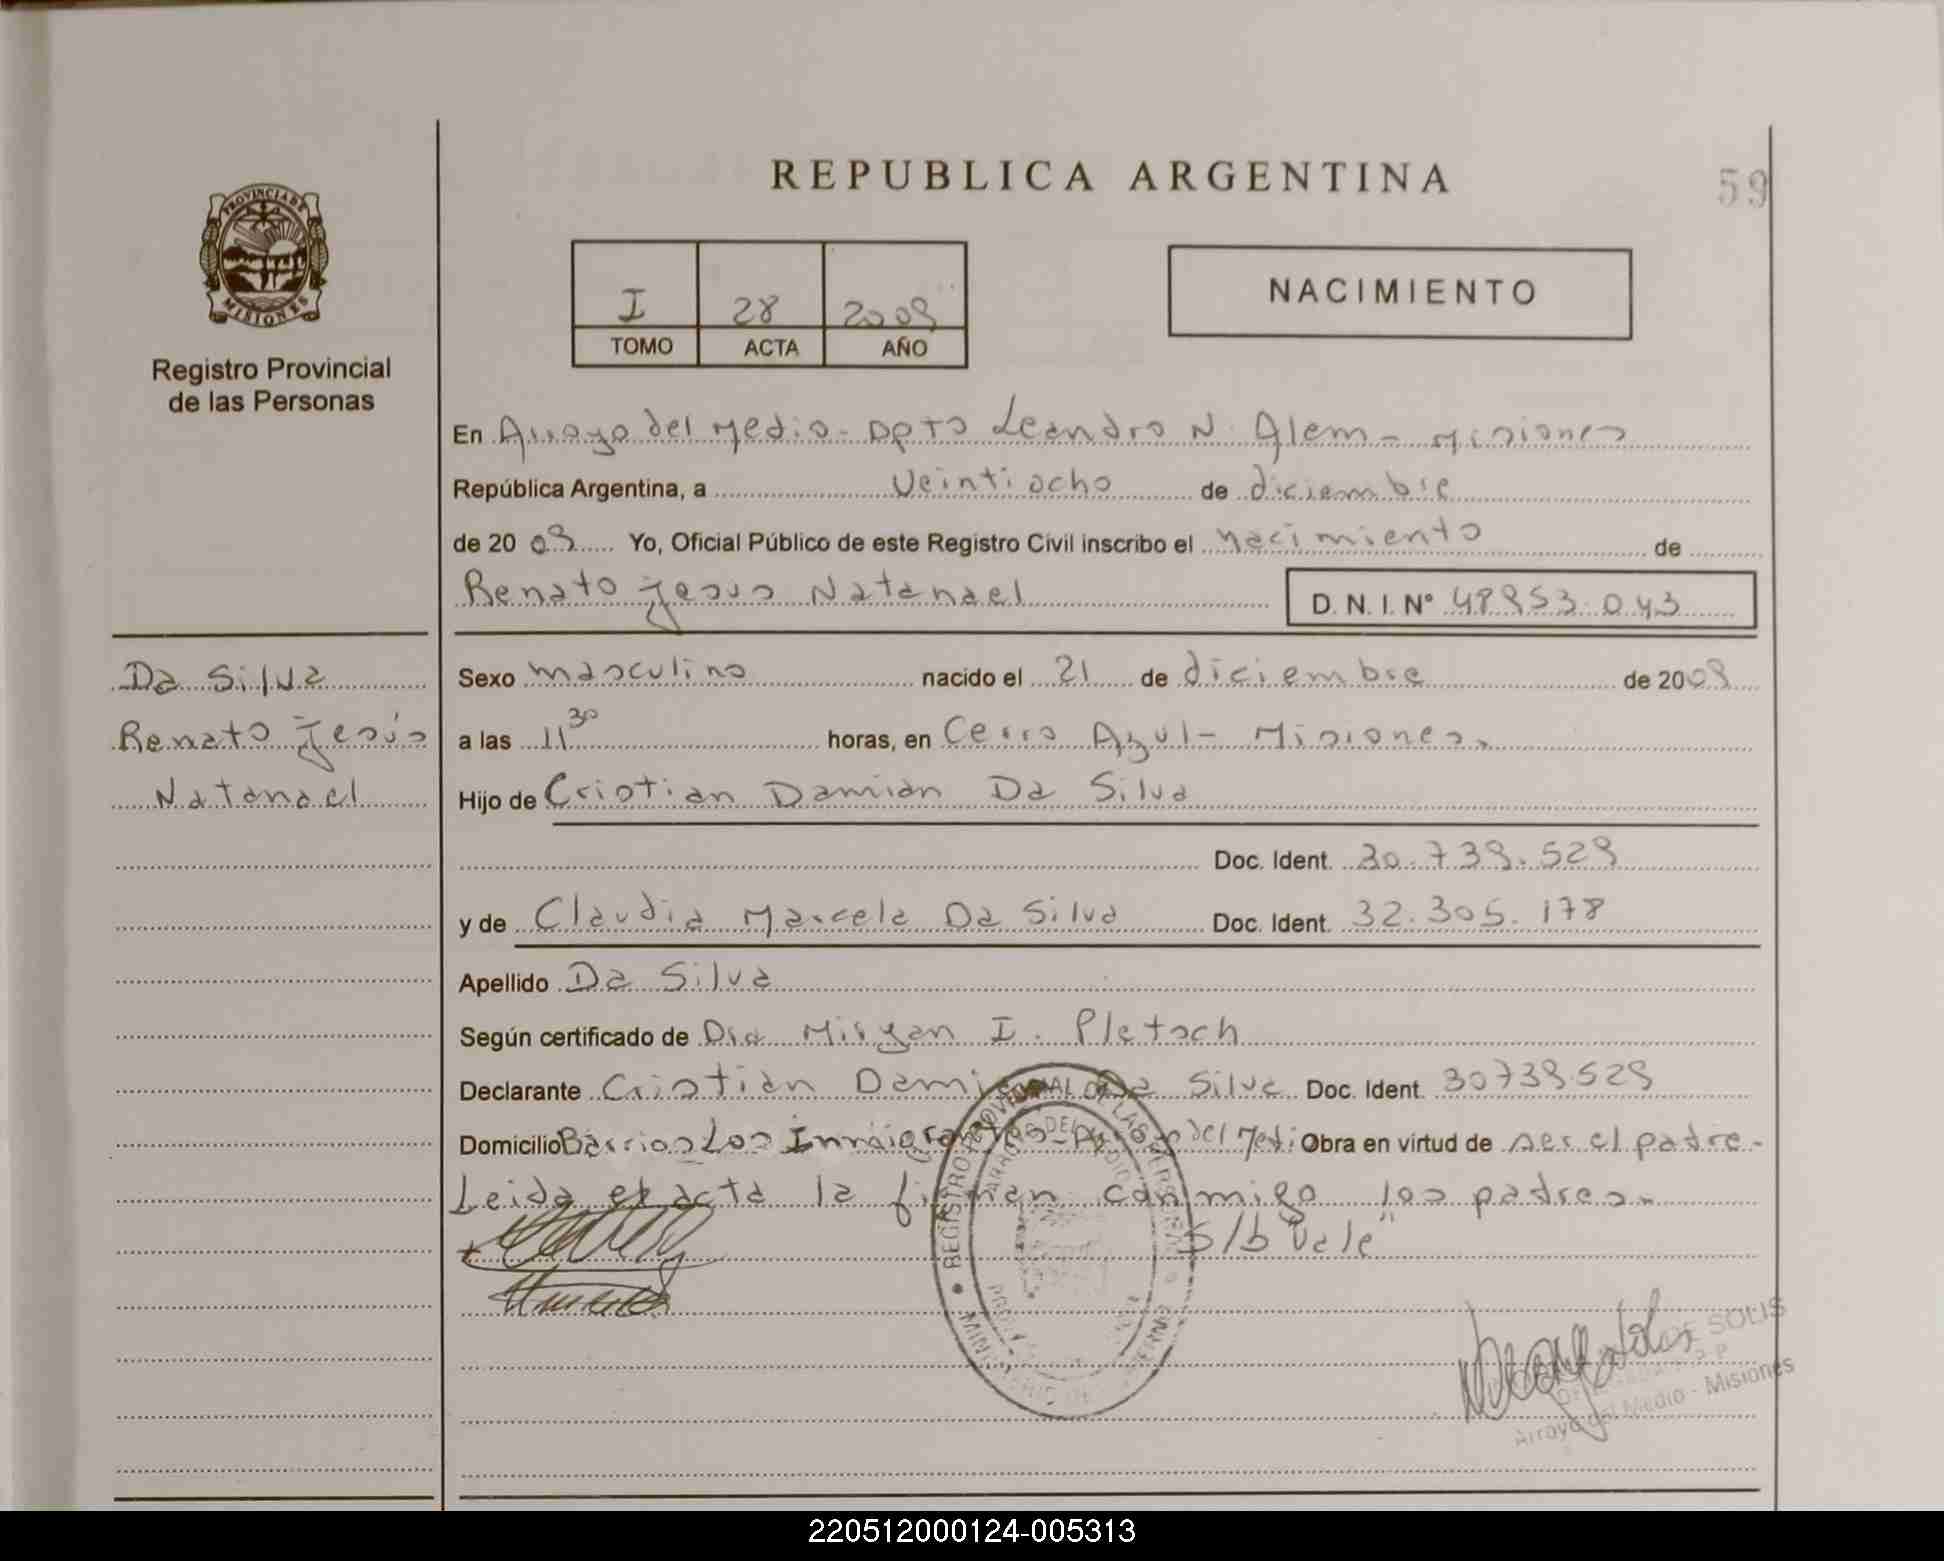 REPUBLICA ARGENTINA
59
PROVINCIA DE
MISIONES
Registro Provincial
de las Personas
I 28 2009
TOMO ACTA AÑO
NACIMIENTO
En Arroyo del Medio - Dpto Leandro N. Alem - Misiones
República Argentina, a veintiocho de diciembre
de 20 09 Yo, Oficial Público de este Registro Civil inscribo el nacimiento de
Renato Jesus Natanael D. N. I. N° 49953.043
Da Silva
Renato Jesús
Natanael
Sexo masculino nacido el 21 de diciembre de 2009
a las 11 30 horas, en Cerro Azul - Misiones.
Hijo de Cristian Damián Da Silva
Doc. Ident. 30.739.529
y de Claudia Marcela Da Silva Doc. Ident. 32.305.178
Apellido Da Silva
Según certificado de Dra Miryan I. Pletsch
Declarante Cristian Dami Da Silva Doc. Ident. 30739529
Domicilio Barrios Los Inmigrantes - Arroyo del Medi Obra en virtud de ser el padre -
Leida el acta la firman conmigo los padres.
S/b Vale"
REGISTRO PROVINCIAL DE LAS PERSONAS
ARROYO DEL MEDIO
DE SOLIS
Arroyo del Medio - Misiones
220512000124-005313